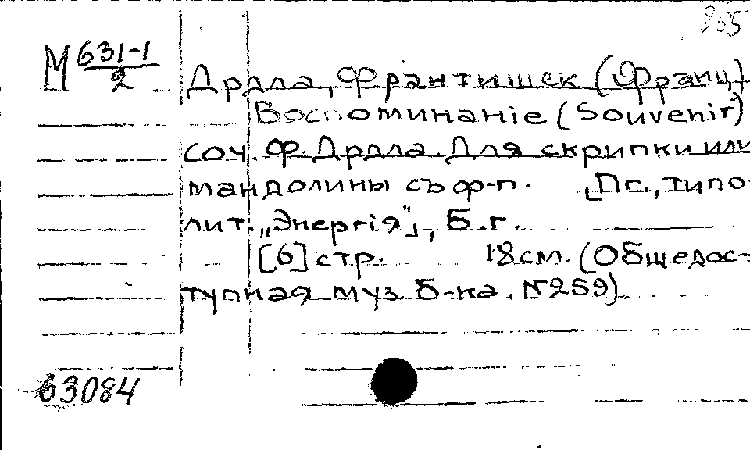 М 631-1
2
Дрдла, Франтишек (Франц)
Воспоминаніе (Souvenir)
соч. Ф. Дрдла. Для скрипки или
мандолины съ ф-п. [Пг., типо-
лит. „Энергія"], Б.г.
[6] стр. 18 см. (Общедос-
тупная муз. б-ка. №259)
63084